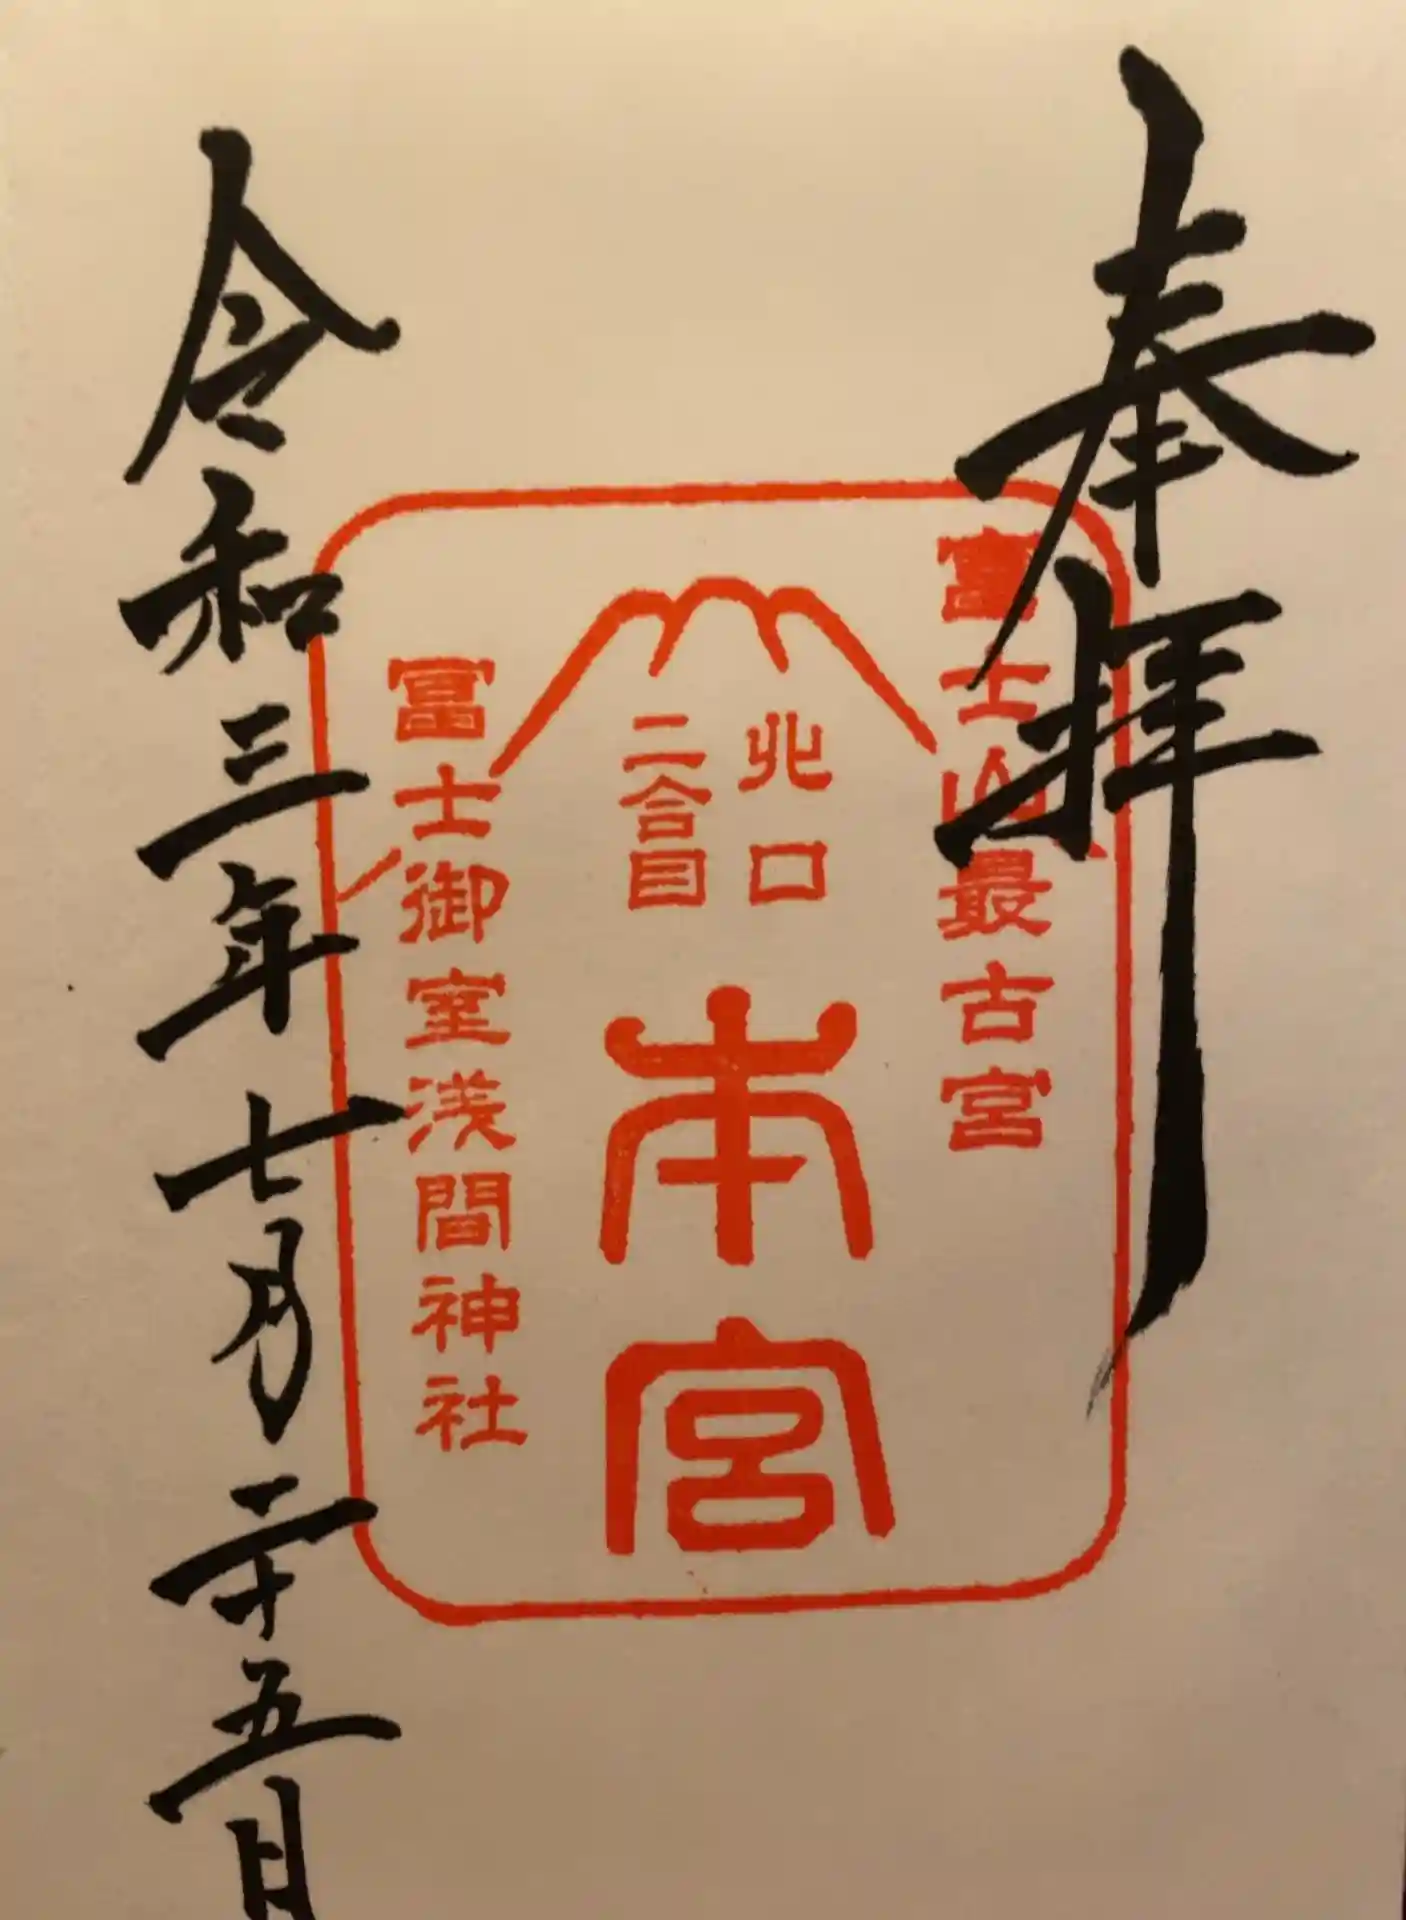 奉拝
冨士山最古宮
北口
二合目
本宮
冨士御室浅間神社
令和三年七月二十五日